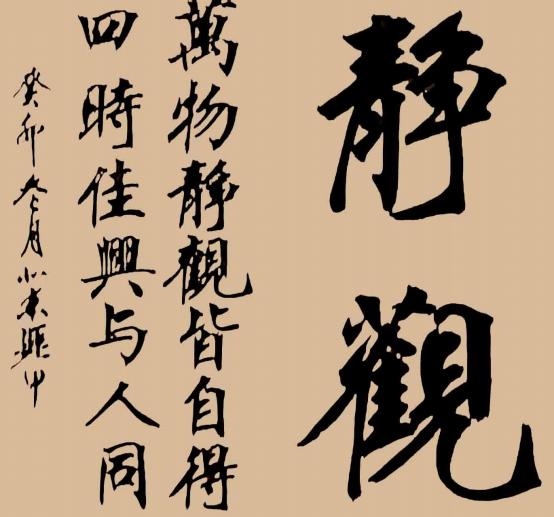 靜觀
萬物靜觀皆自得
四時佳興与人同
癸卯冬月